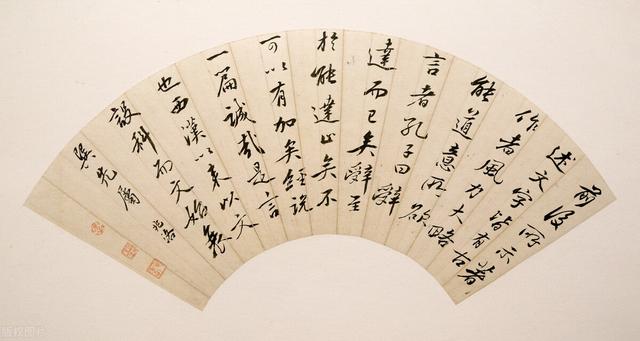 前後所示著
述文字皆有古
作者風力大略
能道意所欲
言者孔子曰辭
達而已矣辭至
於能達止矣不
可以有加矣經說
一篇誠哉是言
也西漢以來以文
設科而文始衰
巽先屬 兆洛